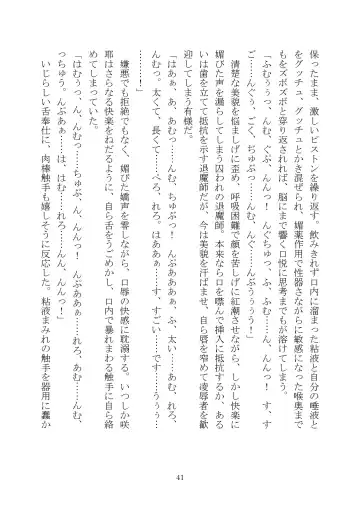 保ったまま、激しいピストンを繰り返す。飲みきれず口内に溜まった粘液と自分の唾液と
をグッチュ、グッチュとかき混ぜられ、媚薬作用で性器さながらに敏感になった喉奥まで
もをズボズボと穿り返されれば、脳にまで響く口悦に思考までもが溶けてしまう。
「ふむぅぅっ、んむ、ぐぶ、んんっ！　んぐちゅっ、ふ、ふむ……ん、んんっ！　す、す
ご……んぐぅ、ごく、ぢゅぷっ……んむ、んぐ……んぶぅぅぅう！」
清楚な美貌を悩ましげに歪め、呼吸困難で顔を苦しげに紅潮させながら、しかし快楽に
媚びた声を漏らしてしまう囚われの退魔師。本来なら口を噤んで挿入に抵抗するか、ある
いは歯を立てて抵抗を示す退魔師だが、今は美貌を汗ばませ、自ら唇を窄めて凌辱者を歓
迎してしまう有様だ。
「はぁぁ、あ、あむっ……んむ、ちゅぷっ！　んぷあああぁ、ふ、太い……あむ、れろ、
んむっ。太くて、長くて……へ、れろ。はああぁ……す、すごい……です……うぅぅ……
……！」
嫌悪でも拒絶でもなく、媚びた嬌声を零しながら、口辱の快感に耽溺する。いつしか咲
耶はさらなる快楽をねだるように、自ら舌をうごめかし、口内で暴れまわる触手に自ら絡
めてしまっていた。
「はむぅっ、ん、んむっ……ちゅぷ、ん、んんっ！　んぷああぁ……れろ、あむ……んむ、
っちゅう。んぷあぁ……は、はむ……れろ……んん、んんっ！」
いじらしい舌奉仕に、肉棒触手も嬉しそうに反応した。粘液まみれの触手を器用に蠢か
41